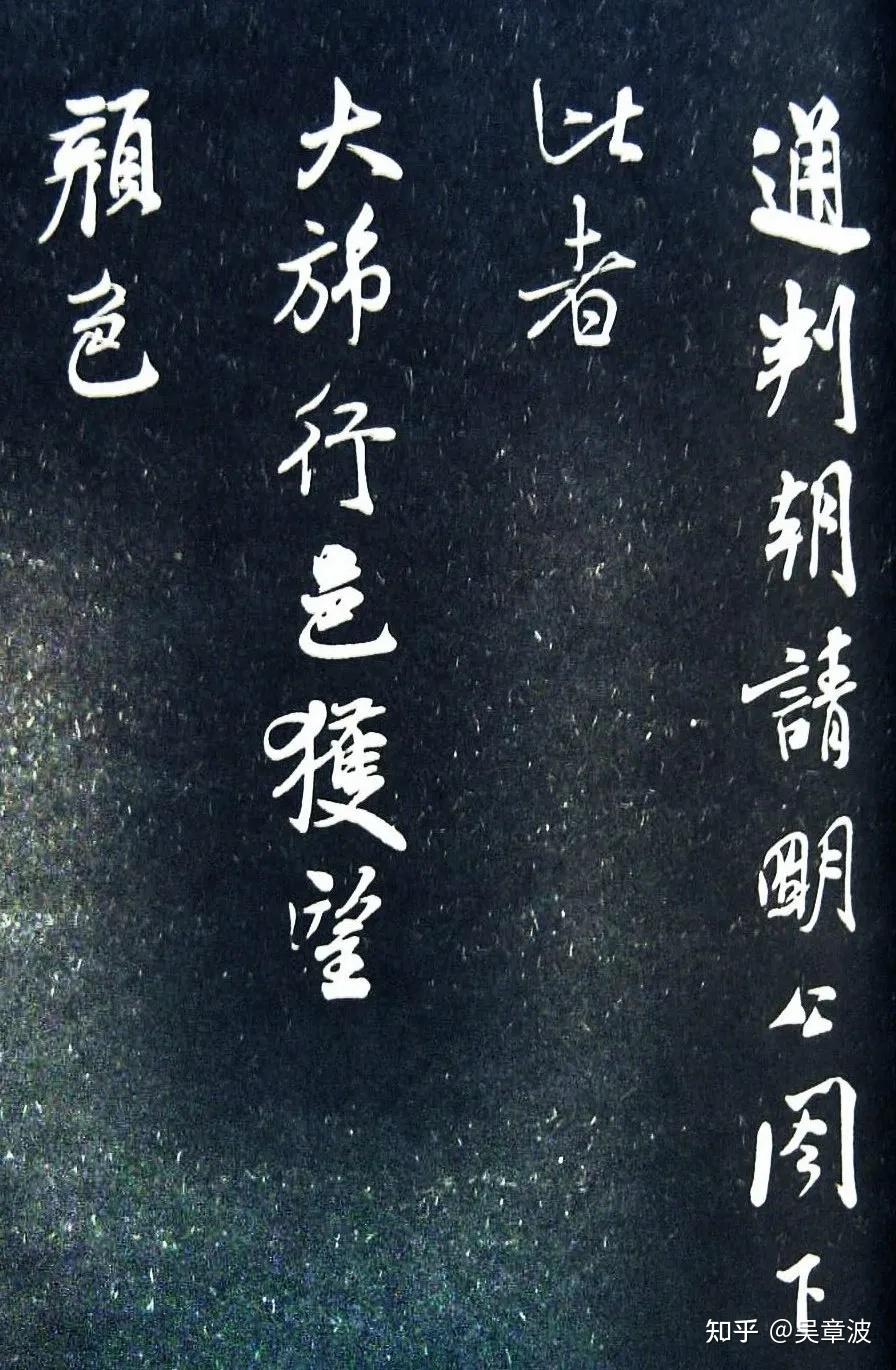 通判朝請明公閤下
此者
大斾行邑獲望
顔色
知乎 @吴章波